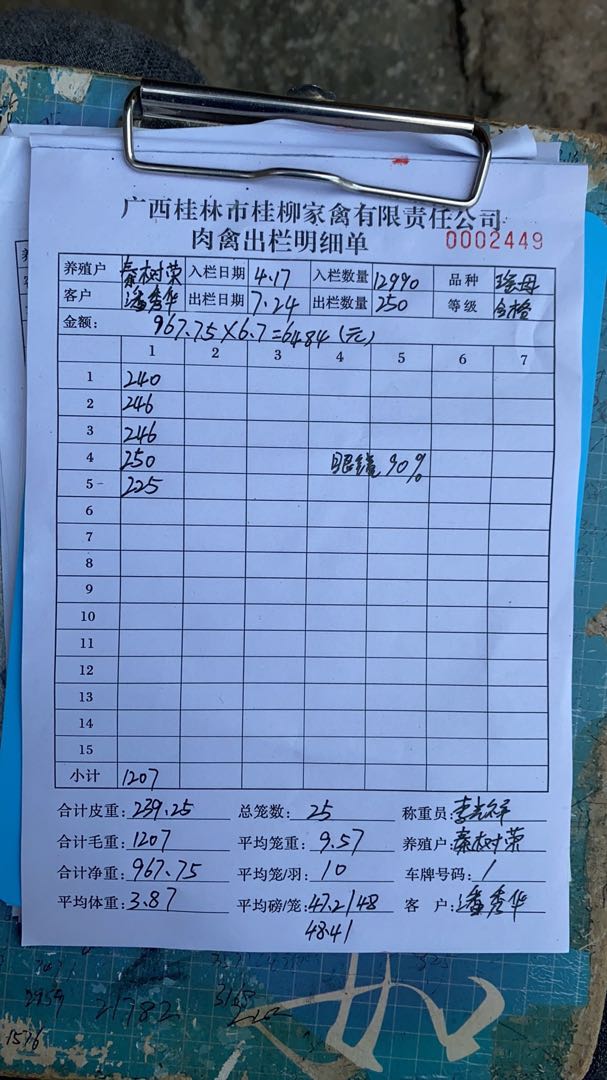 广西桂林市桂柳家禽有限责任公司
肉禽出栏明细单 0002449
养殖户 秦树荣 入栏日期 4.17 入栏数量 12990 品种 瑶母
客户 潘秀华 出栏日期 7.24 出栏数量 250 等级 合格
金额: 967.75×6.7=6484(元)
1 2 3 4 5 6 7
1 240
2 246
3 246
4 250 眼镜90%
5 225
6
7
8
9
10
11
12
13
14
15
小计 1207
合计皮重: 239.25 总笼数: 25 称重员:
合计毛重: 1207 平均笼重: 9.57 养殖户: 秦树荣
合计净重: 967.75 平均笼/羽: 10 车牌号码: /
平均体重: 3.87 平均磅/笼: 47.2/48 客 户: 潘秀华
48.41
21782
1576